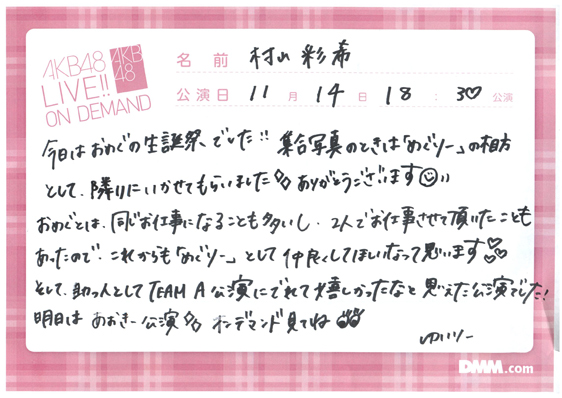 AKB48
LIVE!!
ON DEMAND
AKB
48
名前 村山彩希
公演日 11月14日18:30公演
今日はおめぐの生誕祭でした!! 集合写真のときは「めぐりー」の相方
として、隣りにいかせてもらいました ありがとうございます
おめぐとは、同じお仕事になることも多いし、2人でお仕事させて頂いたことも
あったので、これからも「めぐりー」として仲良くしてほしいなって思います
そして、助っ人としてTEAM A公演にでれて嬉しかったなと思えた公演でした!
明日はあおきー公演 オンデマンド見てね
ゆいりー
DMM.com